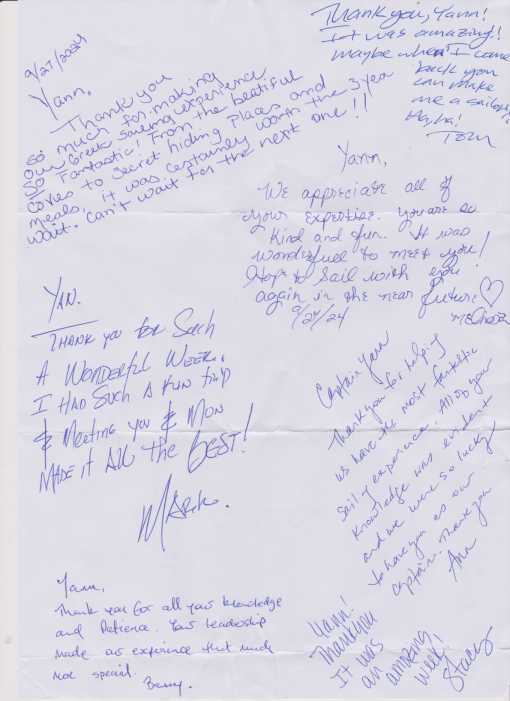 9/27/2024
Yann,
Thank you
so much for making
our Greek sailing experience
so Fantastic! From the beatiful
coves to secret hiding places and
meals, it was certainly worth the 3 year
wait. Can't wait for the next one!!
Thank you, Yann!
It was amazing!!
maybe when I come
back you
can make
me a sailor,
Ha,ha!
Tom
Yann,
We appreciate all of
your expertise. you are so
Kind and fun. It was
wonderfull to meet you!
Hope to Sail with you
again in the near future
9/27/24
YAN.
THANK YOU FOR SUCH
A WONDERFUL WEEK.
I HAD SUCH A FUN TRIP
& MEETING YOU & MON
MADE IT ALL THE BEST!
MARK.
Captain Yann
Thank you for helping
us have the most fantastic
sailing experience. All of you
knowledge was evident
and we were so lucky
to have you as our
captain. Thank you
Ana
Yann,
Thank you for all your knowledge
and Patience. Your leadership
made our experience that much
more special.
Yann!
Thank you
It was
an amazing
week,
Stacy